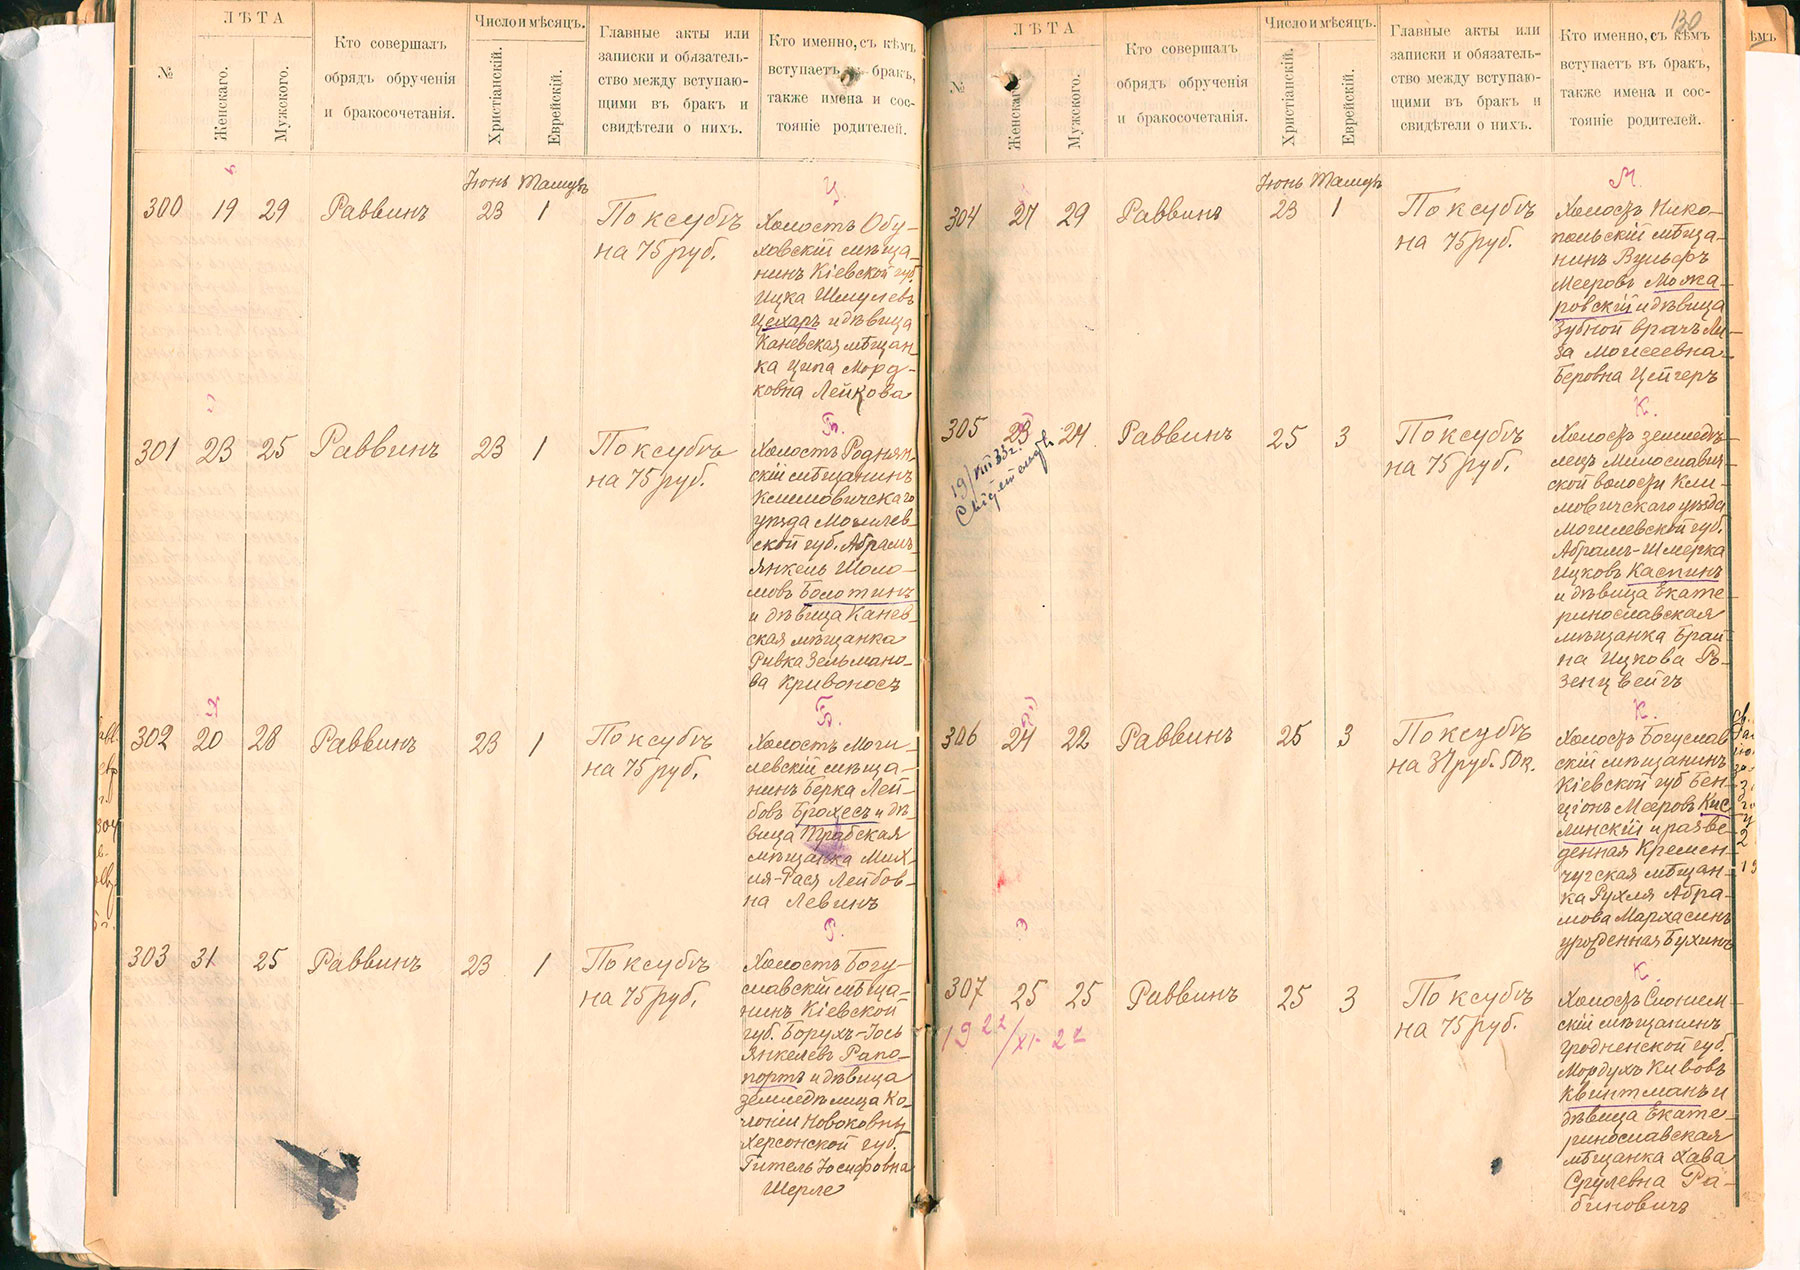 ЛѢТА
Числоимѣсяцъ.
№
Женскаго.
Мужского.
Кто совершалъ
обрядъ обрученія
и бракосочетанія.
Христіанскій.
Еврейскій.
Главные акты или
записки и обязатель-
ство между вступаю-
щими въ бракъ и
свидѣтели о нихъ.
Кто именно, съ кѣмъ
вступаетъ въ бракъ,
также имена и сос-
тояніе родителей.
Іюнь Тамузъ
300 19 29 Раввинъ 23 1
По ксубѣ
на 75 руб.
Ц.
Холостъ Обу-
ховскій мѣща-
нинъ Кіевской губ.
Ицка Шмулевъ
Цехаръ и дѣвица
Каневская мѣщан
ка Ципа Морд-
ковна Лейкова
301 23 25 Раввинъ 23 1
По ксубѣ
на 75 руб.
Б.
Холостъ Роднян-
скій мѣщанинъ
Климовичскаго
уѣзда Могилев-
ской губ. Абрамъ
Янкель Шоло-
мовъ Болотинъ
и дѣвица Канев-
ская мѣщанка
Ривка Зельмано-
ва Кривоносъ
302 20 28 Раввинъ 23 1
По ксубѣ
на 75 руб.
Б.
Холостъ Моги-
левскій мѣща-
нинъ Берка Лей-
бовъ Брохесъ и дѣ-
вица Трабская
мѣщанка Мих-
ля-Гася Лейбов-
на Левинъ
303 31 25 Раввинъ 23 1
По ксубѣ
на 75 руб.
Р.
Холостъ Богу-
славскій мѣща-
нинъ Кіевской
губ. Борухъ-Іось
Янкелевъ Рапо-
портъ и дѣвица
земледѣлица Ко-
лоніи Новоковны
Херсонской губ.
Гитель Іосифовна
Шерле
130
ЛѢТА
Числоимѣсяцъ.
№
Женскаго
Мужского.
Кто совершалъ
обрядъ обрученія
и бракосочетанія.
Христіанскій.
Еврейскій.
Главные акты или
записки и обязатель-
ство между вступаю-
щими въ бракъ и
свидѣтели о нихъ.
Кто именно, съ кѣмъ
вступаетъ въ бракъ,
также имена и сос-
тояніе родителей.
Іюнь Тамузъ
304 27 29 Раввинъ 23 1
По ксубѣ
на 75 руб.
М.
Холостъ Нико-
польскій мѣща-
нинъ Вульфъ
Мееровъ Можа-
ровскій и дѣвица
Зубной врачъ Ли-
за Моисеевна-
Беровна Цейгеръ
305 23 24 Раввинъ 25 3
19/VIII 33 г.
По ксубѣ
на 75 руб.
К.
Холостъ земледѣ-
лецъ Милославич-
ской волости Кли-
мовичскаго уѣзда
Могилевской губ.
Абрамъ-Шмерка
Ицковъ Каспинъ
и дѣвица Екате-
ринославская
мѣщанка Брай-
на Ицкова Ро-
зенцвейгъ
306 24 22 Раввинъ 25 3
По ксубѣ
на 37 руб. 50 к.
К.
Холостъ Богуслав
скій мѣщанинъ
Кіевской губ Бен-
ціонъ Мееровъ Кис
линскій и разве-
денная Кремен-
чугская мѣщан-
ка Рухля Абра-
мова Мархасинъ
урожденная Бухинъ
307 25 25 Раввинъ 25 3
1922/XI-22
По ксубѣ
на 75 руб.
К.
Холостъ Слоним-
скій мѣщанинъ
Гродненской губ.
Мордухъ Кивовъ
Квинтманъ и
дѣвица Екате-
ринославская
мѣщанка Хава
Срулевна Ра-
биновичъ